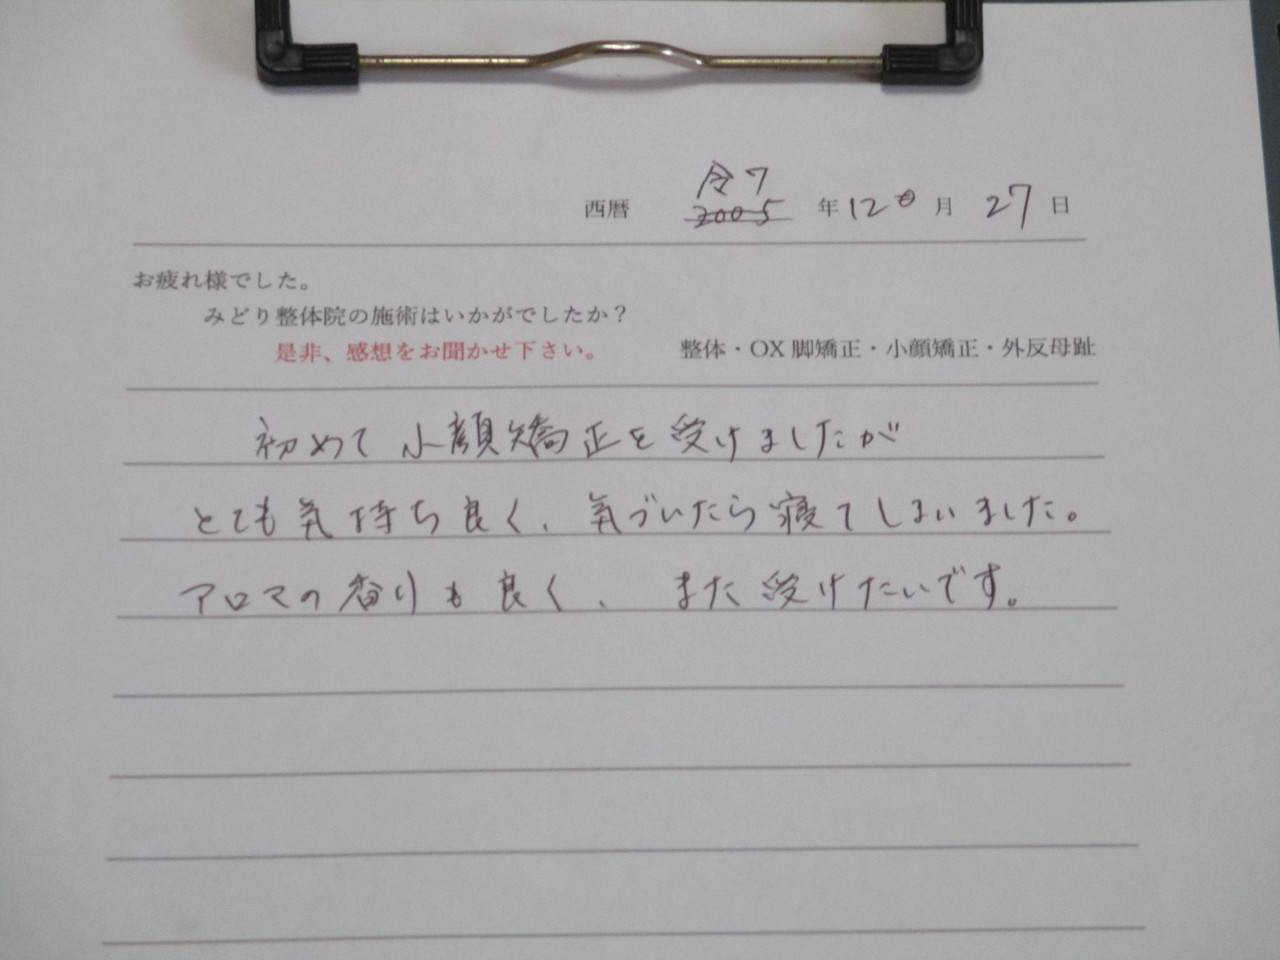 令7
西暦 2005 年 12 月 27 日
お疲れ様でした。
みどり整体院の施術はいかがでしたか?
是非、感想をお聞かせ下さい。 整体・OX脚矯正・小顔矯正・外反母趾
初めて小顔矯正を受けましたが
とても気持ち良く、気づいたら寝てしまいました。
アロマの香りも良く、また受けたいです。